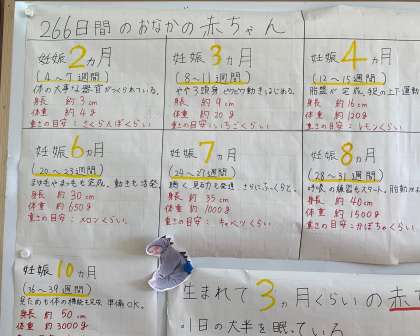 266日間のおなかの赤ちゃん
妊娠2ヵ月
(4〜7週間)
体の大事な器官がつくられている。
身長 約3cm
体重 約4g
重さの目安:さくらんぼくらい
妊娠3ヵ月
(8〜11週間)
やや3頭身、ピクピク動きはじめる。
身長 約9cm
体重 約20g
重さの目安:いちごくらい
妊娠4ヵ月
(12〜15週間)
胎盤が完成、手足の上下運動
身長 約16cm
体重 約120g
重さの目安:レモンくらい
妊娠6ヵ月
(20〜23週間)
まゆもまつ毛も完成。動きも活発。
身長 約30cm
体重 約650g
重さの目安:メロンくらい。
妊娠7ヵ月
(24〜27週間)
聴く、見る力も発達 さらにふっくらと。
身長 約35cm
体重 約1000g
重さの目安:キャベツくらい
妊娠8ヵ月
(28〜31週間)
呼吸の練習もスタート。胎動が
身長 約40cm
体重 約1500g
重さの目安:かぼちゃくらい
妊娠10ヵ月
(36〜39週間)
見ためも体の機能も完成 準備OK。
身長 約50cm
体重 約3000g
生まれて3ヵ月くらいの赤
・1日の大半を眠っている